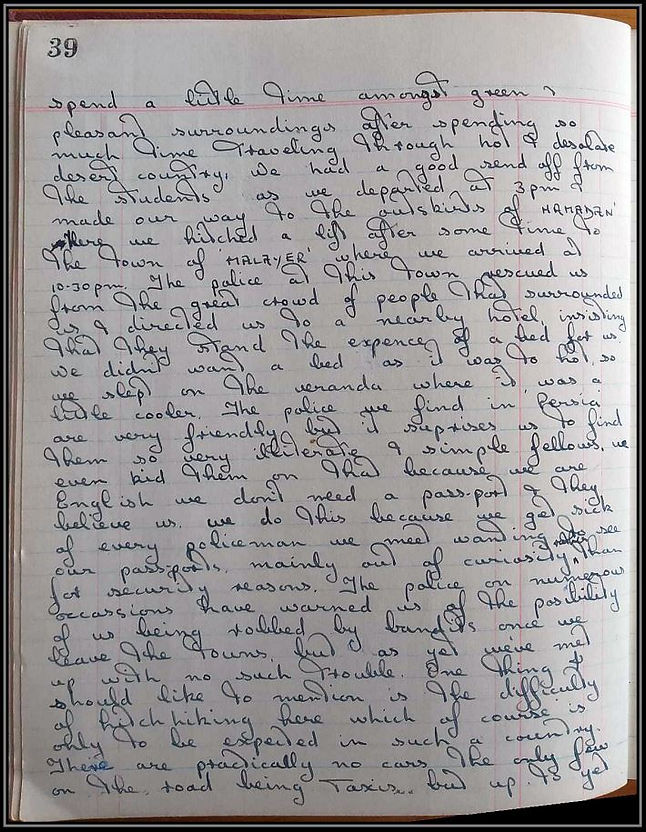 39
spend a little time amongst green &
pleasant surroundings after spending so
much time traveling through hot & desolate
desert country. We had a good send off from
the students as we departed at 3pm &
made our way to the outskirts of 'HAMADAN'
where we hitched a lift after some time to
the town of 'MALAYER' where we arrived at
10-30pm. The police at this town rescued us
from the great crowd of people that surrounded
us & directed us to a nearby hotel, insisting
that they stand the expence of a bed for us.
we didn't want a bed as it was to hot, so
we slept on the veranda where it was a
little cooler. The police we find in Persia
are very friendly but it suprises us to find
them so very illiterate & simple fellows. we
even kid them on that because we are
English we don't need a pass-port & they
believe us. we do this because we get sick
of every policeman we meet wanting to see
our passports, mainly out of curiosity, than
for security reasons. The police on numerous
occassions have warned us of the posibility
of us being robbed by bandits once we
leave the towns, but as yet we've met
up with no such trouble. One thing I
should like to mention is the difficulty
of hitch hiking here which of course is
only to be expected in such a country.
There are practically no cars, the only few
on the road being Taxis.. but up to yet